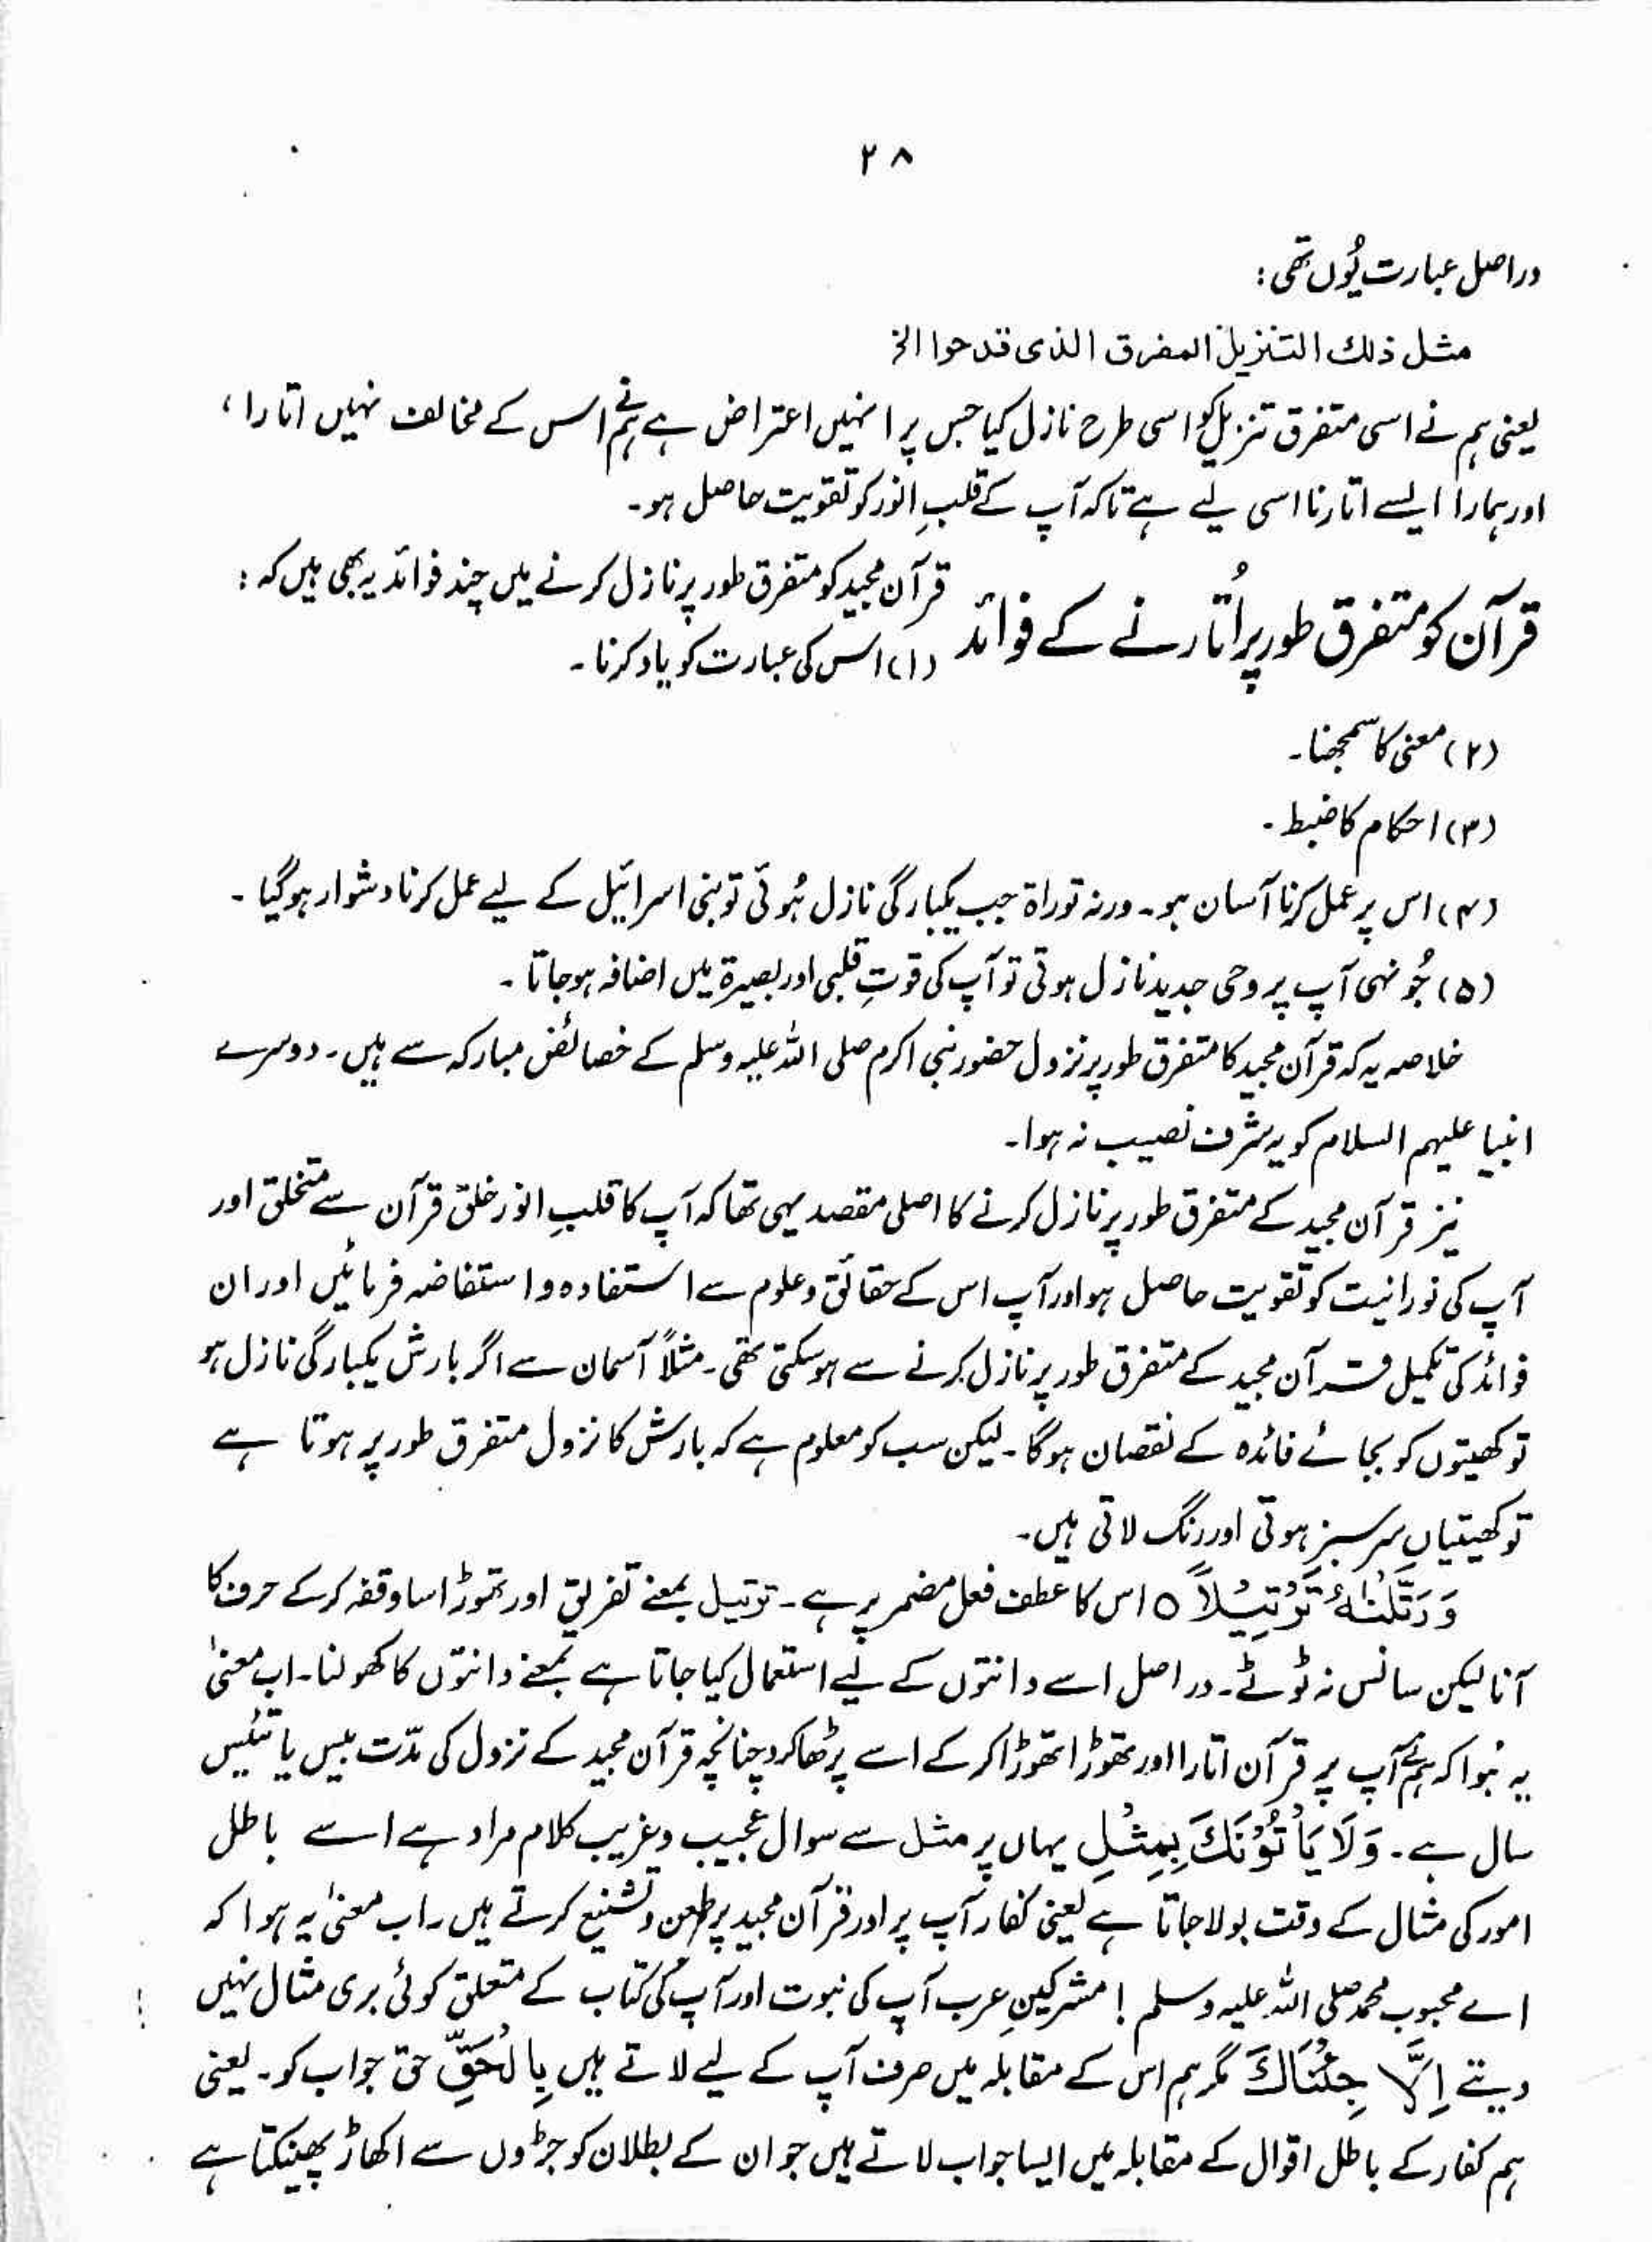 ۲۸
دراصل عبارت یُوں تھی:
مثل ذلك التنزیل المفرق الذی قدحوا الخ
یعنی ہم نے اسی متفرق تنزیل کو اسی طرح نازل کیا جس پر انہیں اعتراض ہے ہم نے اس کے مخالف نہیں اتارا،
اور ہمارا ایسے اتارنا اسی لیے ہے تاکہ آپ کے قلبِ انور کو تقویت حاصل ہو۔
قرآن کو متفرق طور پر اُتارنے کے فوائد
قرآن مجید کو متفرق طور پر نازل کرنے میں چند فوائد یہ بھی ہیں کہ:
(۱) اس کی عبارت کو یاد کرنا۔
(۲) معنی کا سمجھنا۔
(۳) احکام کا ضبط۔
(۴) اس پر عمل کرنا آسان ہو۔ ورنہ توراۃ جب یکبارگی نازل ہُوئی تو بنی اسرائیل کے لیے عمل کرنا دشوار ہو گیا۔
(۵) جُونہی آپ پر وحی جدید نازل ہوتی تو آپ کی قوتِ قلبی اور بصیرۃ میں اضافہ ہو جاتا۔
خلاصہ یہ کہ قرآن مجید کا متفرق طور پر نزول حضور نبی اکرم صلی اللہ علیہ وسلم کے خصائص مبارکہ سے ہیں۔ دوسرے
انبیا علیہم السلام کو یہ شرف نصیب نہ ہوا۔
نیز قرآن مجید کے متفرق طور پر نازل کرنے کا اصلی مقصد یہی تھا کہ آپ کا قلبِ انور خلق قرآن سے متخلق اور
آپ کی نورانیت کو تقویت حاصل ہو اور آپ اس کے حقائق و علوم سے استفادہ و استفاضہ فرمائیں اور ان
فوائد کی تکمیل قرآن مجید کے متفرق طور پر نازل کرنے سے ہو سکتی تھی۔ مثلاً آسمان سے اگر بارش یکبارگی نازل ہو
تو کھیتوں کو بجائے فائدہ کے نقصان ہو گا۔ لیکن سب کو معلوم ہے کہ بارش کا نزول متفرق طور پر ہوتا ہے
تو کھیتیاں سرسبز ہوتی اور رنگ لاتی ہیں۔
وَرَتَّلْنٰهُ تَرْتِیْلًا ○ اس کا عطف فعل مضمر پر ہے۔ ترتیل بمعنے تفریق اور تھوڑا سا وقفہ کر کے حرف کا
آنا لیکن سانس نہ ٹوٹے۔ دراصل اسے دانتوں کے لیے استعمال کیا جاتا ہے بمعنے دانتوں کا کھولنا۔ اب معنیٰ
یہ ہُوا کہ ہم نے آپ پر قرآن اتارا اور تھوڑا تھوڑا کر کے اسے پڑھا کرو چنانچہ قرآن مجید کے نزول کی مدّت بیس یا تئیس
سال ہے۔ وَلَا یَاْتُوْنَكَ بِمِثْلٍ یہاں پر مثل سے سوال عجیب و غریب کلام مراد ہے اسے باطل
امور کی مثال کے وقت بولا جاتا ہے یعنی کفار آپ پر اور قرآن مجید پر طعن و تشنیع کرتے ہیں۔ اب معنیٰ یہ ہوا کہ
اے محبوب محمد صلی اللہ علیہ وسلم! مشرکینِ عرب آپ کی نبوت اور آپ کی کتاب کے متعلق کوئی بری مثال نہیں
دیتے اِلَّا جِئْنَاكَ مگر ہم اس کے مقابلہ میں صرف آپ کے لیے لاتے ہیں بِالْحَقِّ حق جواب کو۔ یعنی
ہم کفار کے باطل اقوال کے مقابلہ میں ایسا جواب لاتے ہیں جو ان کے بطلان کو جڑوں سے اکھاڑ پھینکتا ہے